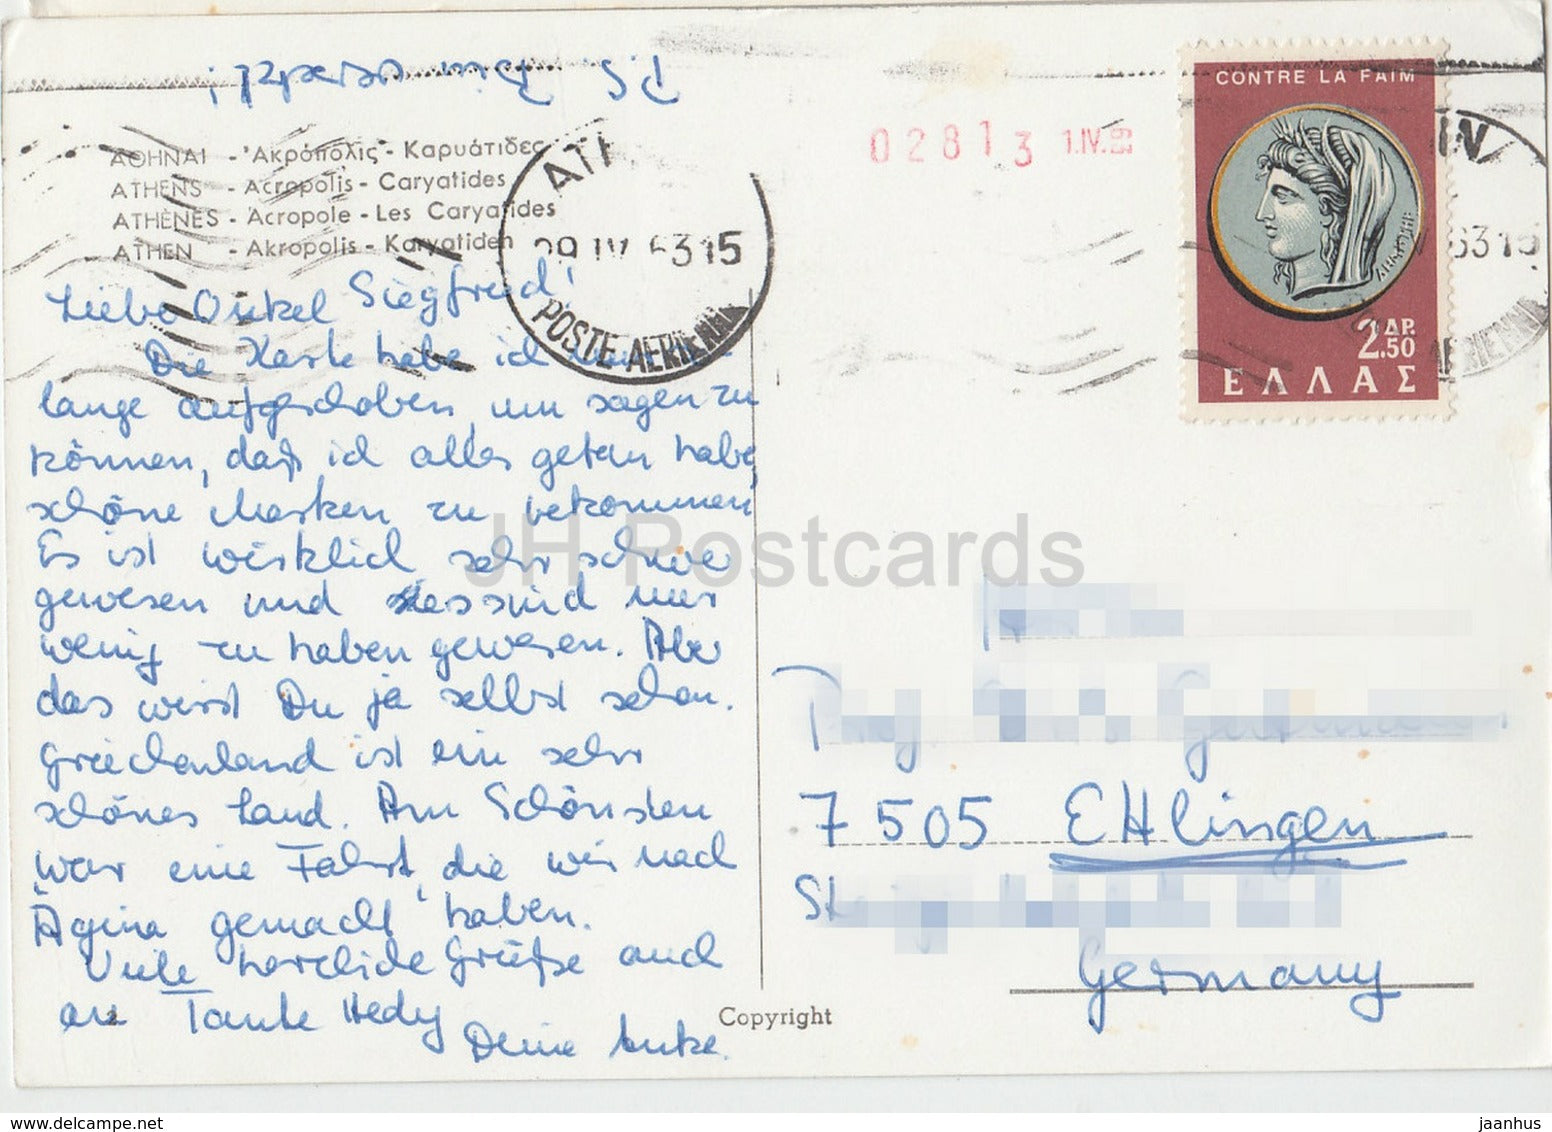 CONTRE LA FAIM
02813 1.IV.
ΑΘΗΝΑΙ - Ἀκρόπολις - Καρυάτιδες
ATHENS - Acropolis - Caryatides
ATHÈNES - Acropole - Les Caryatides
ATHEN - Akropolis - Karyatiden
IV 63 15
POSTE AERIENNE
2.50 ΔΡ.
ΕΛΛΑΣ
63 15
Liebe Onkel Siegfried!
Die Karte habe ich
lange aufgeschoben, um sagen zu
können, daß ich alles getan habe,
schöne Marken zu bekommen
Es ist wirklich sehr schwer
gewesen und es sind nur
wenig zu haben gewesen. Aber
das wirst Du ja selbst sehen.
Griechenland ist ein sehr
schönes Land. Am Schönsten
war eine Fahrt, die wir nach
Ägina gemacht haben.
Viele herzliche Grüße auch
an Tante Hedy
Deine Anke.
7505 Ettlingen
Germany
Copyright
JH Postcards
jaanhus www.delcampe.net